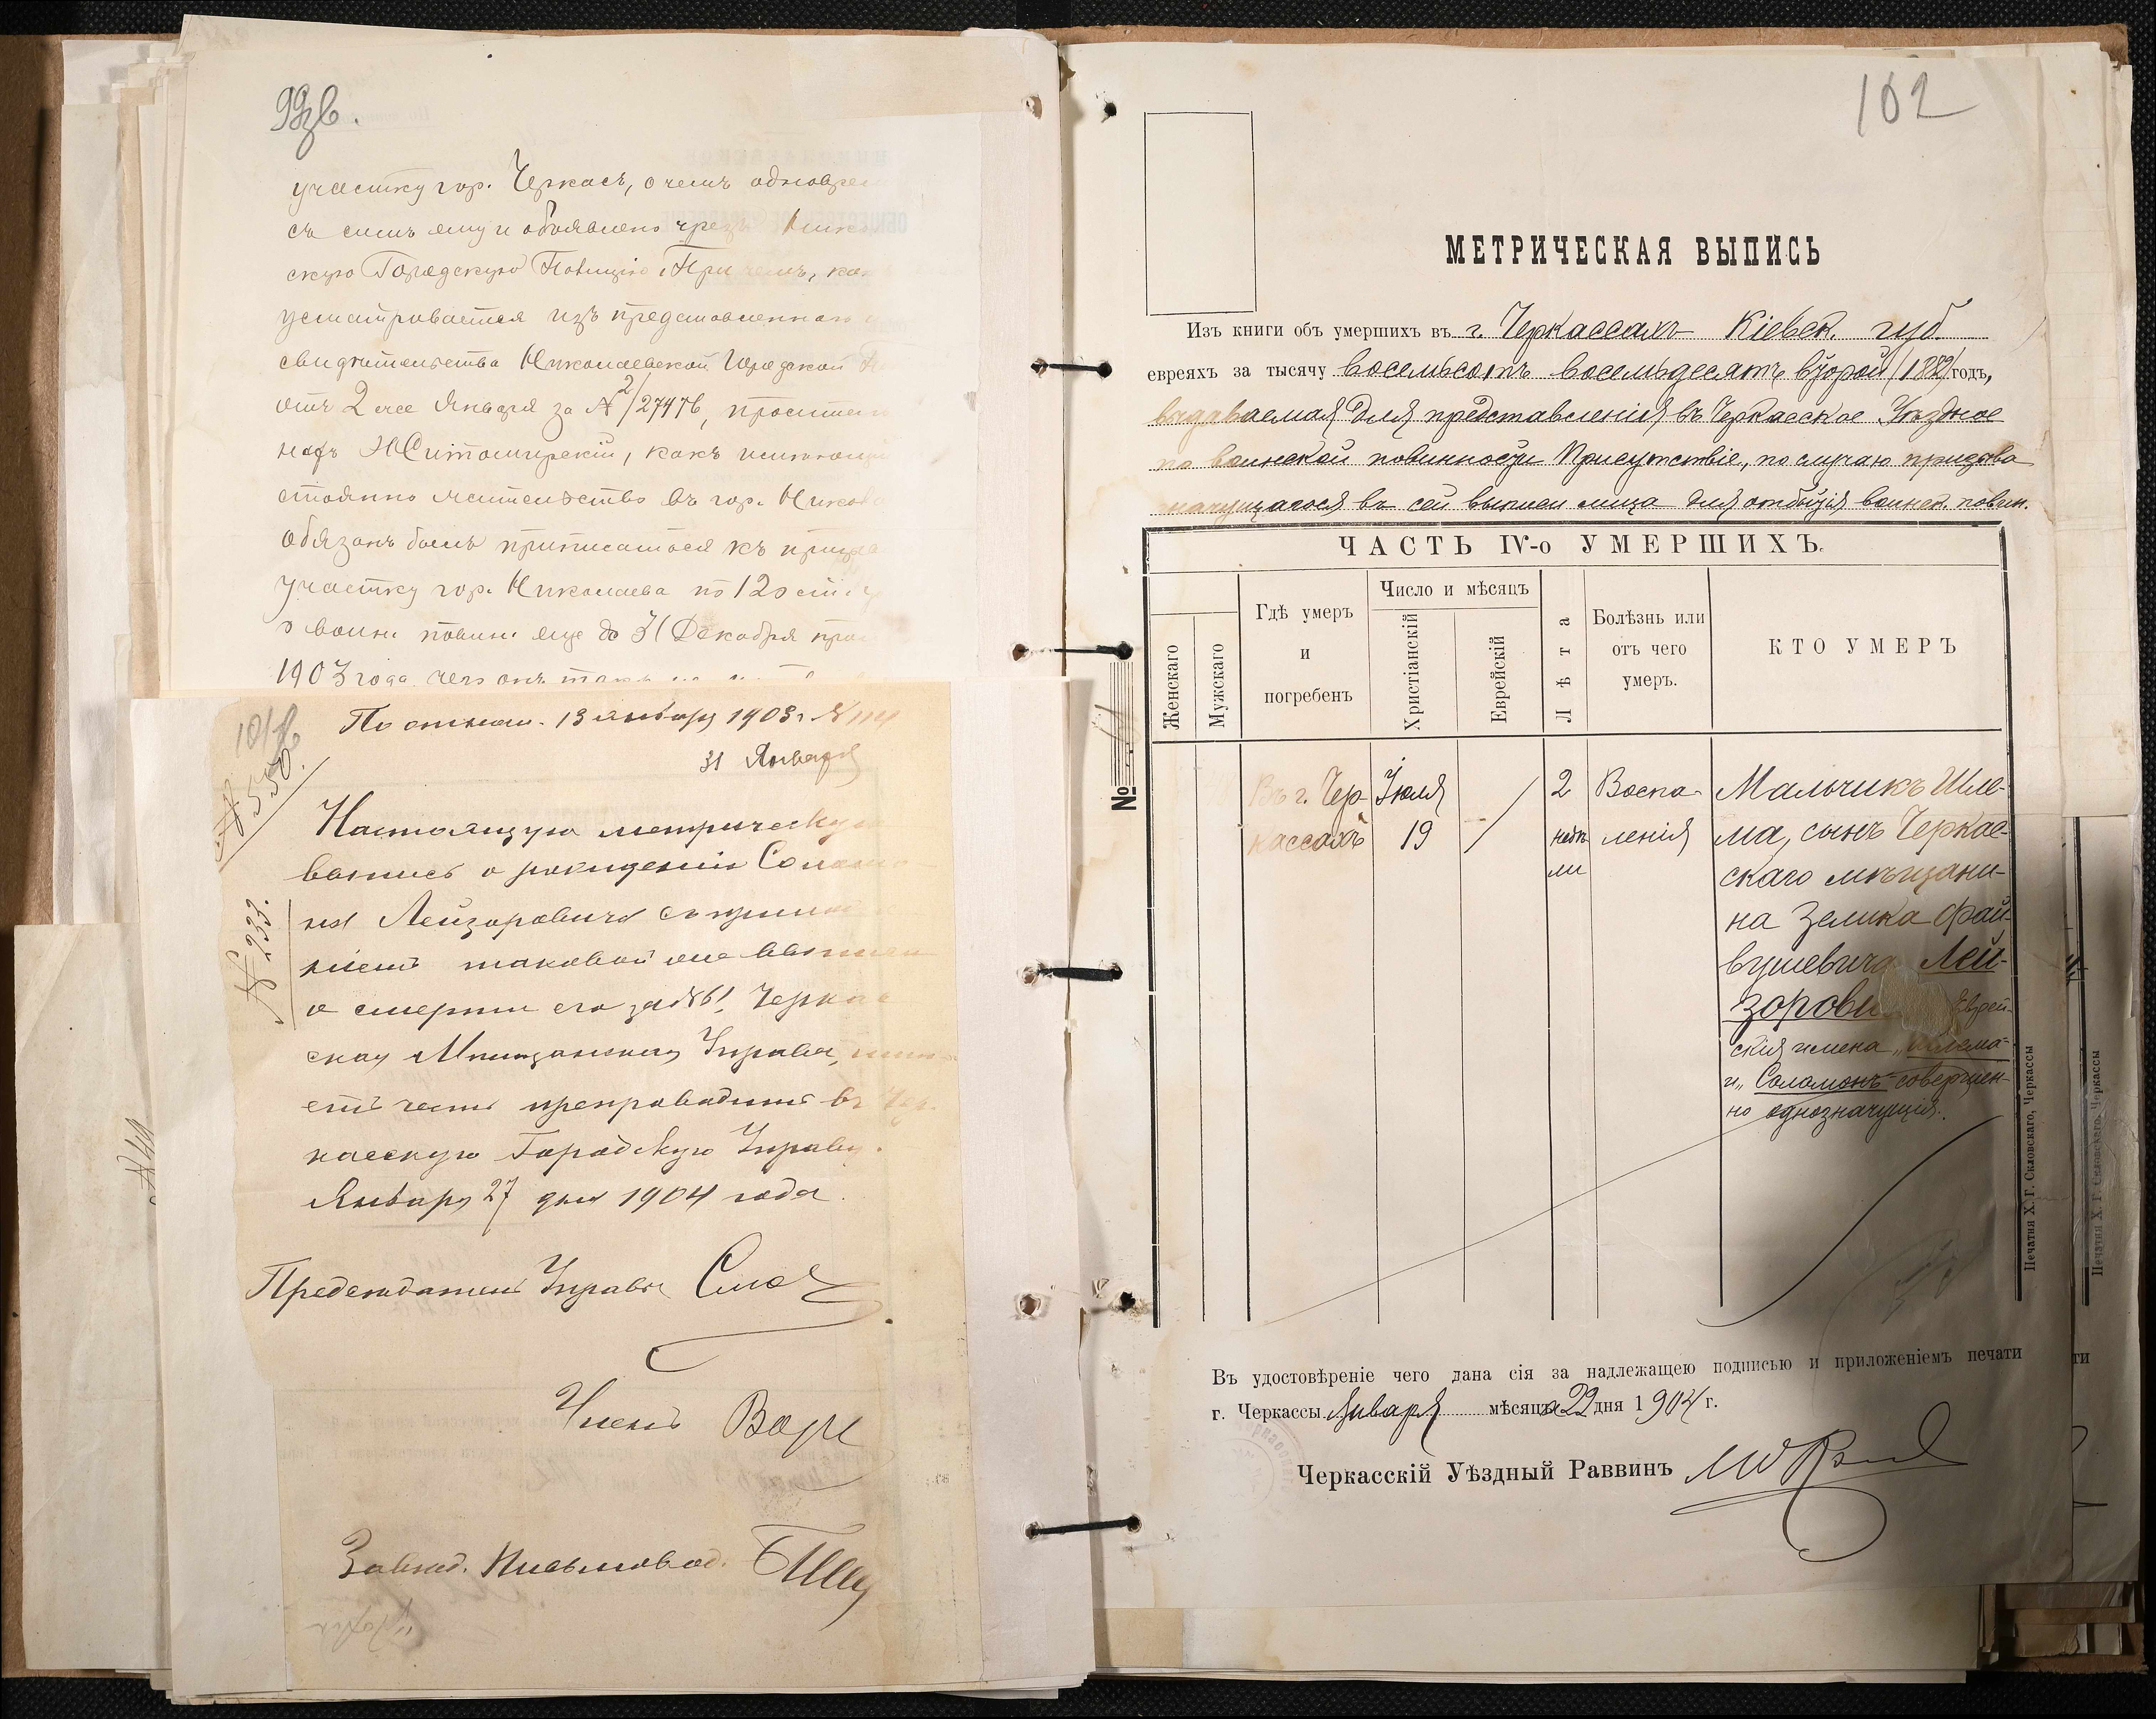 участку гор. Черкасъ, о чемъ одновре
съ симъ ему и объявлено чрезъ Нико
скую Городскую Полицію. При чемъ, как
усматривается изъ представленнаго
свидѣтельства Николаевской Городской
отъ 2 сего Января за № 2/27476, просител
Житомирскій, какъ имѣющій
стоянно жительство въ гор. Никол
обязанъ былъ приписаться къ призыв
участку гор. Николаева по 120 ст.
о воин. повин. еще до 31 Декабря про
1903 года чего онъ
101
№ 550.
По отнош. 13 января 1903 г. № 114
31 Января
№ 233.
Настоящую метрическую
выпись о рожденіи Соломо
на Лейзоровича съ прило
ніемъ таковой же выписи
о смерти его за № 61, Черкас
ская Мѣщанская Управа, имѣ
етъ честь препроводить въ Чер
касскую Городскую Управу.
Января 27 дня 1904 года.
Предсѣдатель Управы
Членъ
Завѣд. Письмовод.
102
МЕТРИЧЕСКАЯ ВЫПИСЬ
Изъ книги объ умершихъ въ г. Черкассахъ Кіевск. губ.
евреяхъ за тысячу восемьсотъ восемьдесятъ второй /1882/ годъ,
выдаваемая для представленія въ Черкасское Уѣздное
по воинской повинности Присутствіе, по случаю призыва
значущагося въ сей выписи лица для отбытія воинск. повин.
ЧАСТЬ IV-о УМЕРШИХЪ.
Женскаго
Мужскаго
Гдѣ умеръ и погребенъ
Число и мѣсяцъ
Христіанскій
Еврейскій
Лѣта
Болѣзнь или отъ чего умеръ.
КТО УМЕРЪ
№
Въ г. Чер- Іюля 2 Воспа- Мальчикъ Шле-
кассахъ 19 недѣ- ленія ма, сынъ Черкас-
ли скаго мѣщани-
на Зелика Фай-
вушевича Лей-
зорови Еврей-
скія имена „Шлема"
и „Соломонъ" совершен-
но однозначущія.
Печатня Х. Г. Скловскаго, Черкассы
Печатня Х. Г. Скловскаго, Черкассы
Въ удостовѣреніе чего дана сія за надлежащею подписью и приложеніемъ печати
г. Черкассы Января мѣсяца 22 дня 1904 г.
Черкасскій Уѣздный Раввинъ